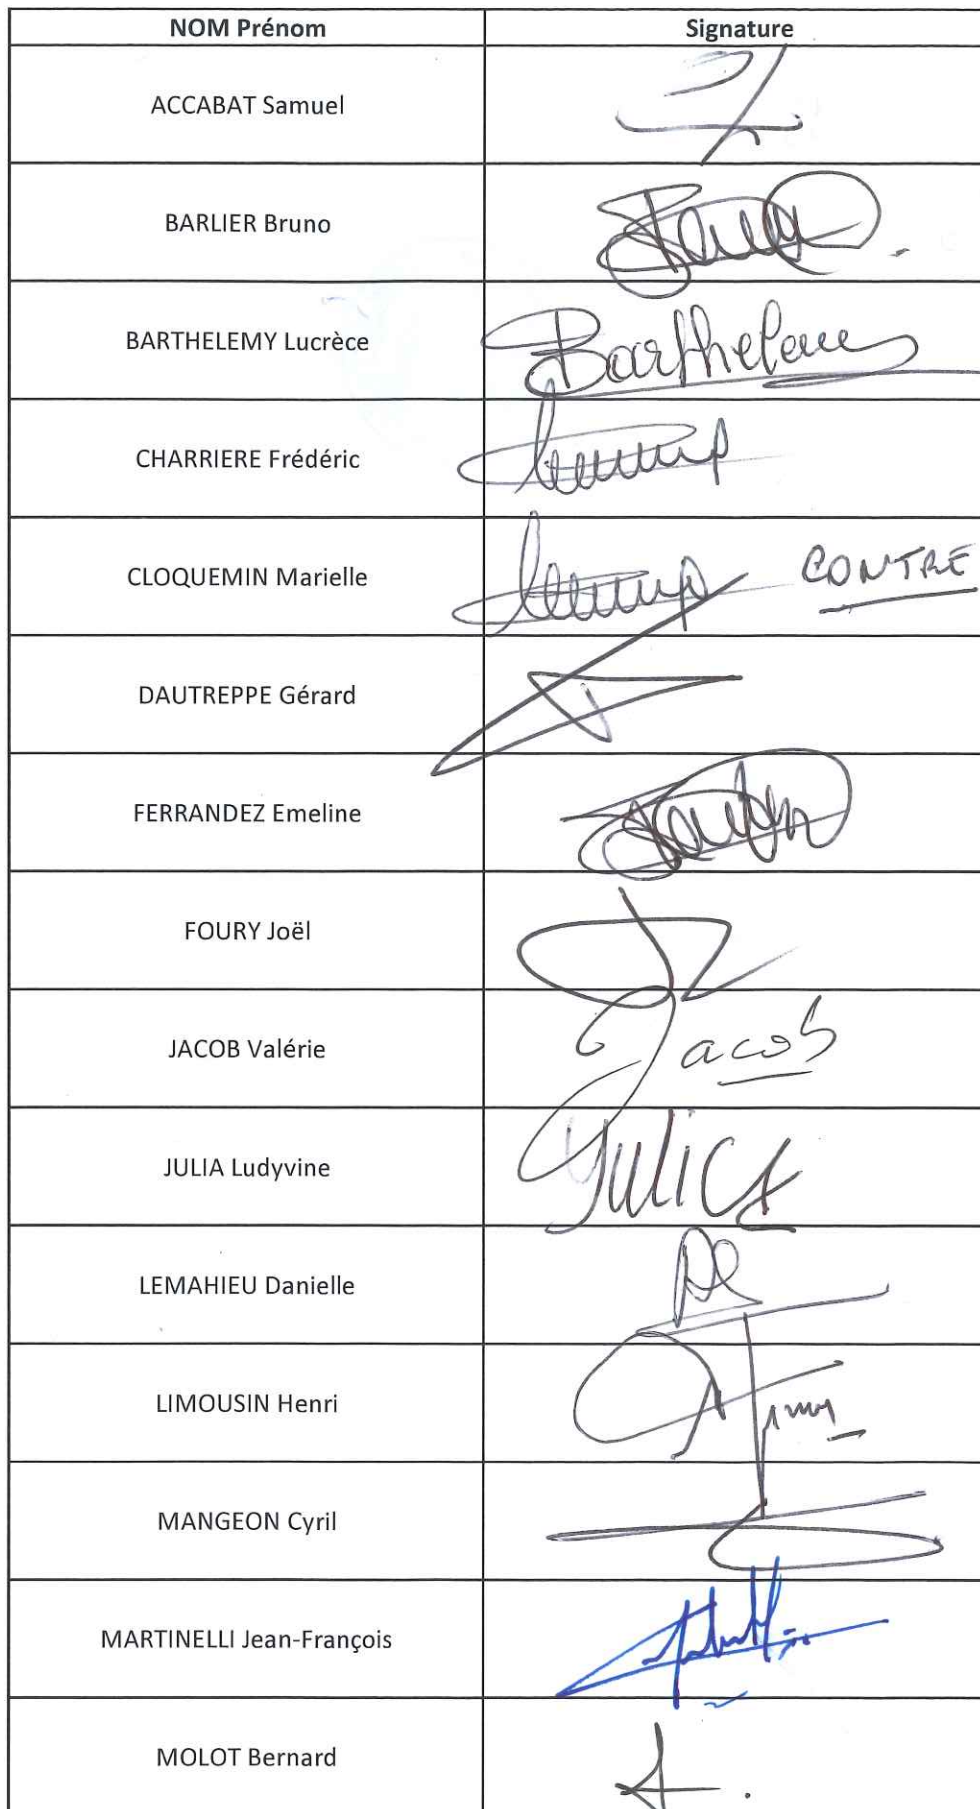 NOM Prénom Signature
ACCABAT Samuel
BARLIER Bruno
BARTHELEMY Lucrèce Barthelemy
CHARRIERE Frédéric
CLOQUEMIN Marielle CONTRE
DAUTREPPE Gérard
FERRANDEZ Emeline
FOURY Joël
JACOB Valérie Jacob
JULIA Ludyvine Julia
LEMAHIEU Danielle
LIMOUSIN Henri
MANGEON Cyril
MARTINELLI Jean-François
MOLOT Bernard